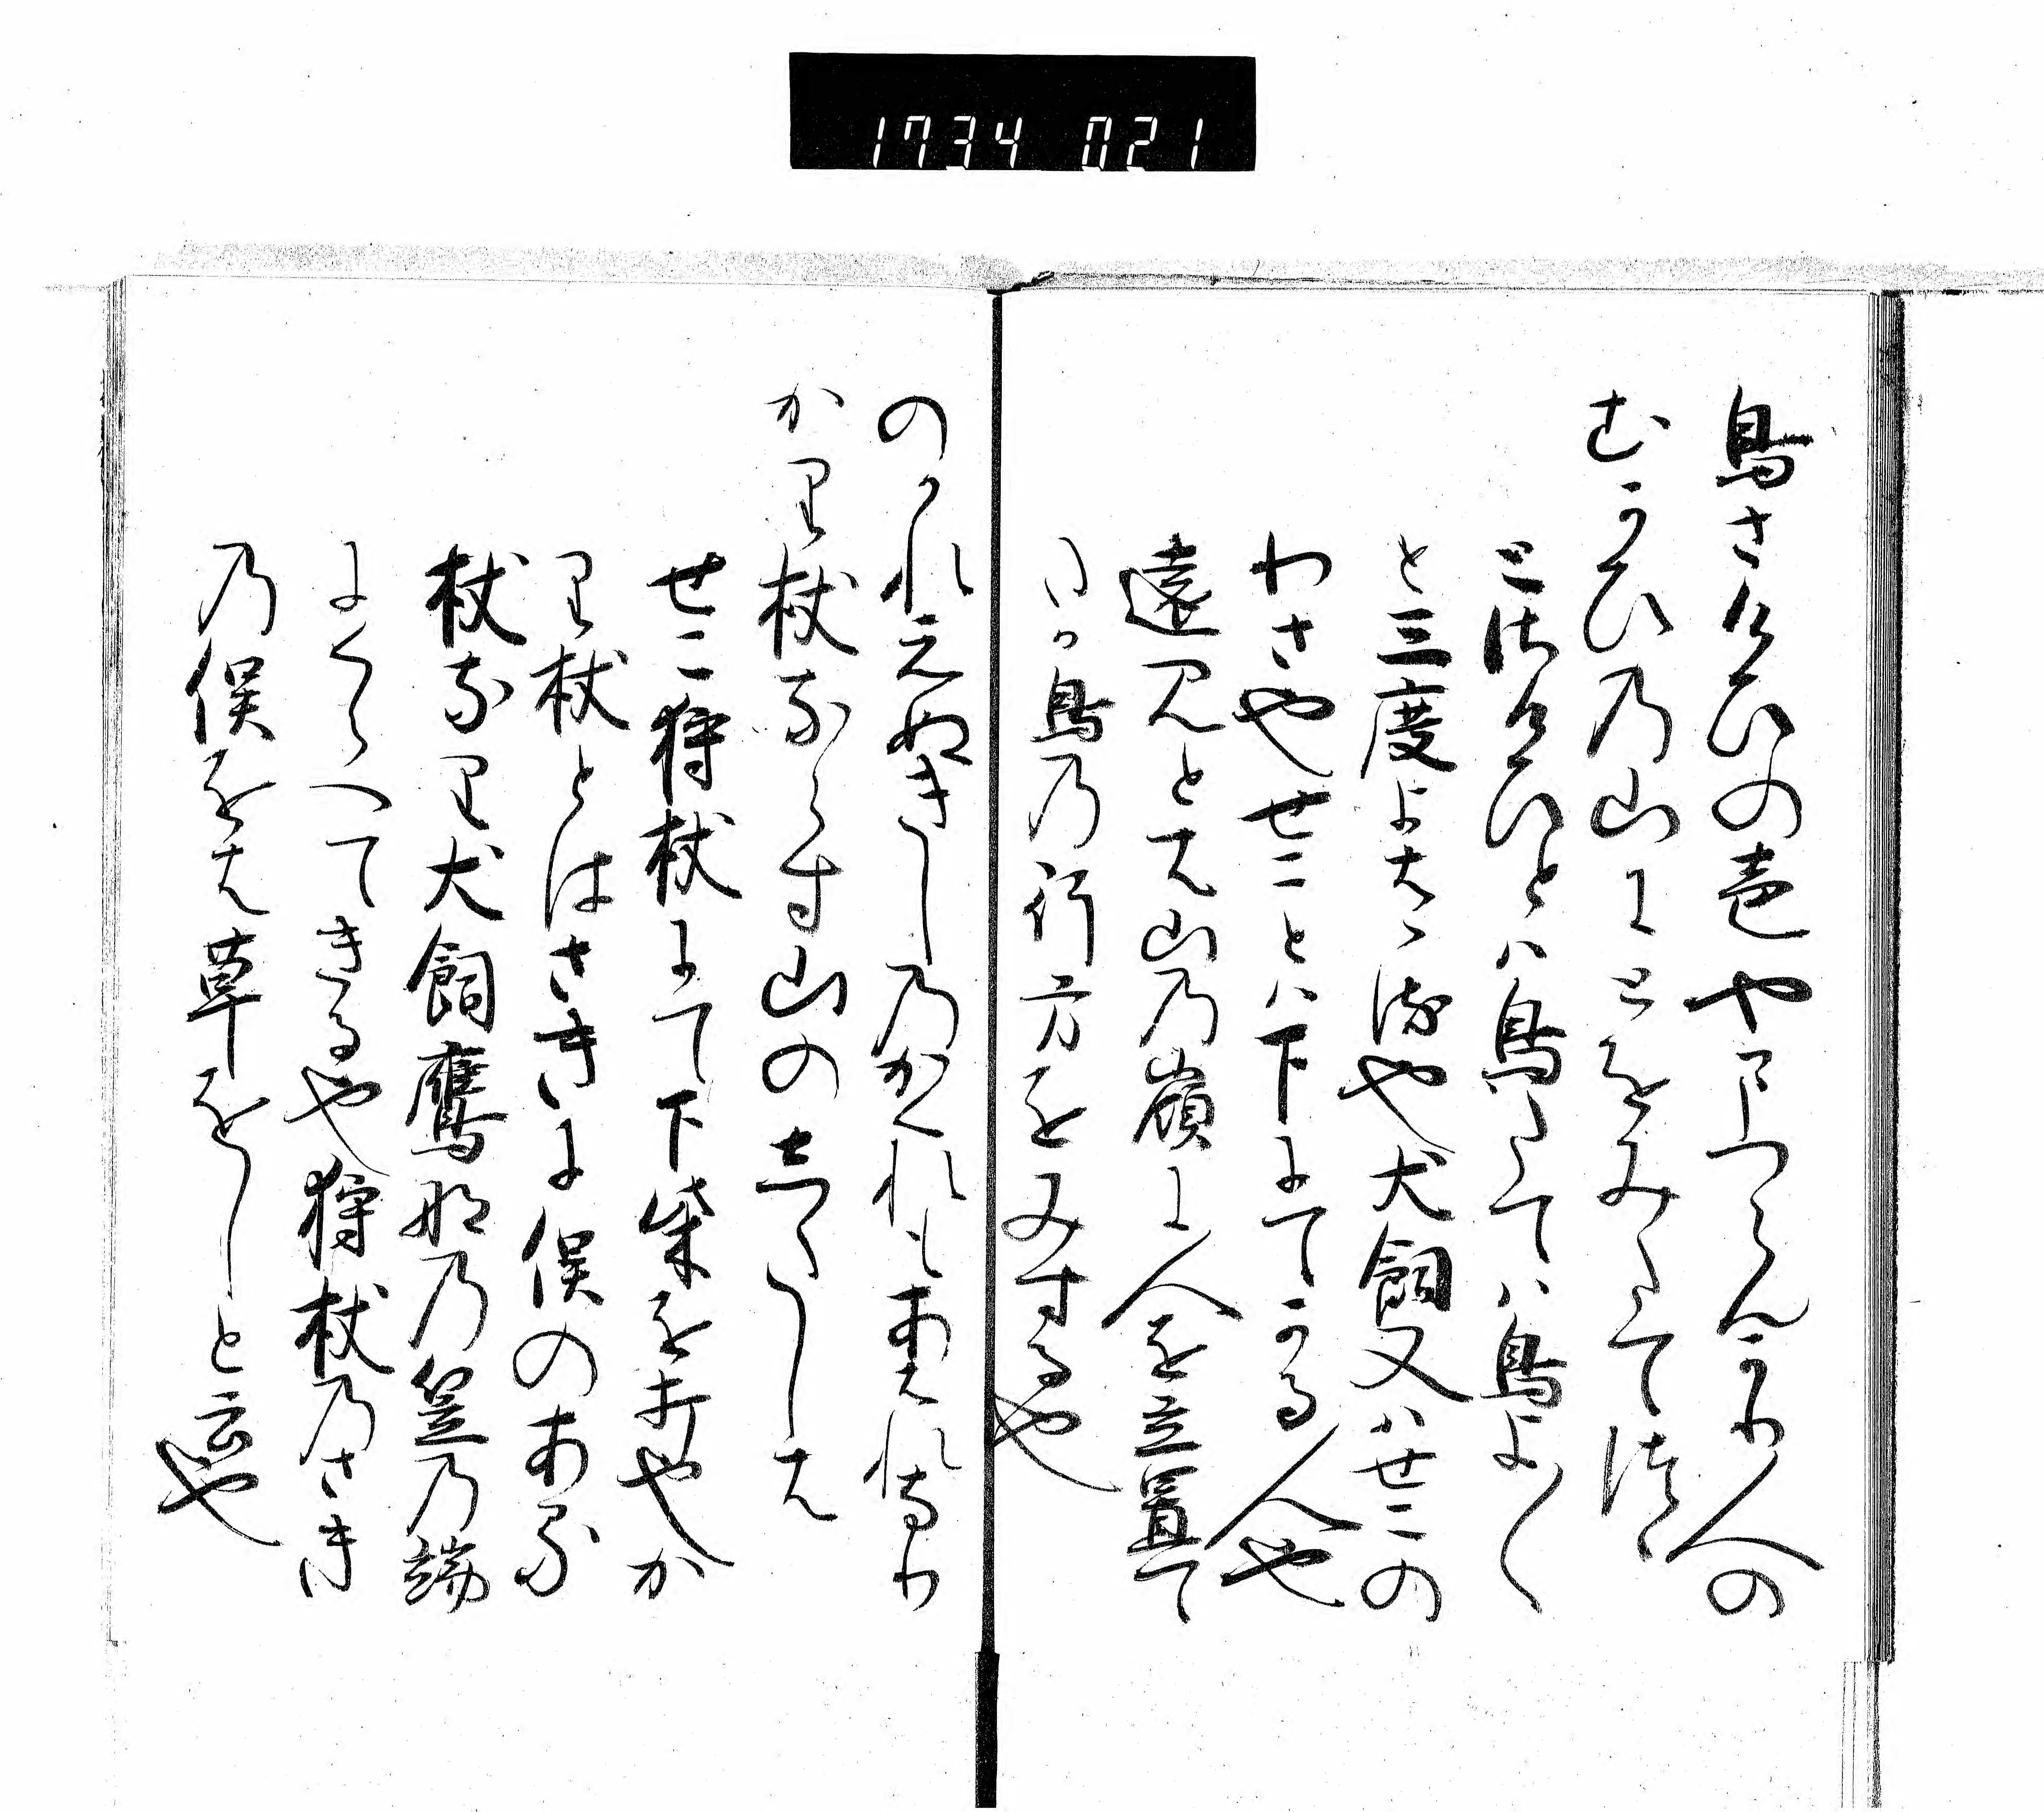 1734 021
鳥さけひの声やきこつらんかり人の
むかひの山にとをみたて
とさけひとハ鳥たてハ鳥よ〱
と三度よはゝるや犬飼又ハせこの
わさやせことハ下にてかる人や
遠見とは山乃嶺に人を立置て
いか鳥乃行方をみするや
のかれえぬきし乃かくれもあはれなり
かり杖ならす山の志たしは
せこ狩杖にて下柴を打やか
り杖とはさきに俣のある
杖なり犬飼鷹師乃笠乃端
にくらへてきるや狩杖乃さき
乃俣をは草をしと云や